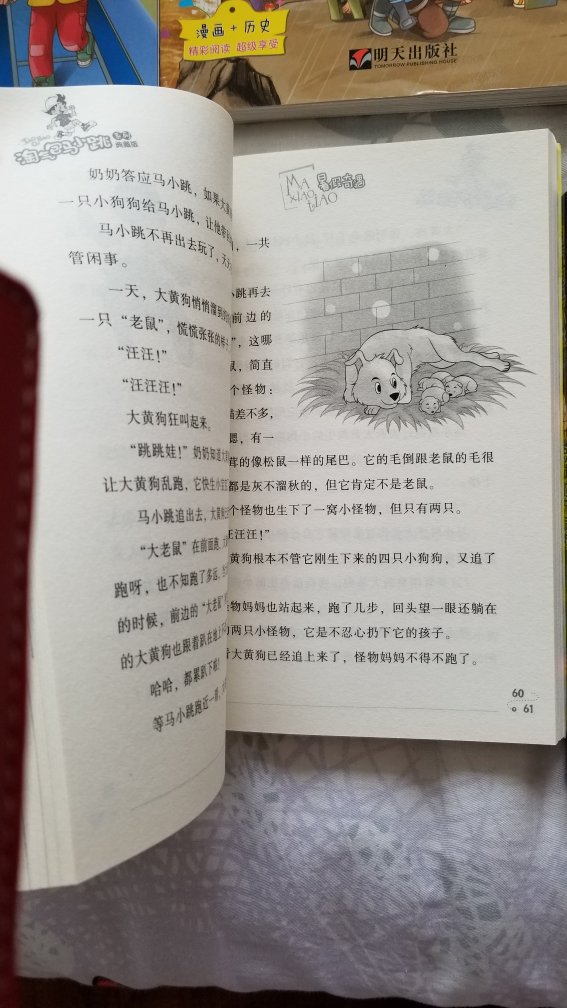 漫画+历史
精彩阅读 超级享受
明天出版社
TOMORROW PUBLISHING HOUSE
淘气包马小跳
系列
典藏版
奶奶答应马小跳,如果大黄
一只小狗狗给马小跳,让他
马小跳不再出去玩了,天天
管闲事。
一天,大黄狗悄悄溜到
一只“老鼠”,慌慌张张的
“汪汪!”
“汪汪汪!”
大黄狗狂叫起来。
“跳跳娃!”奶奶知道大
让大黄狗乱跑,它快生小宝
马小跳追出去,大黄狗
“大老鼠”在前面跑,
跑呀,也不知跑了多远。
的时候,前边的“大老鼠”
的大黄狗也跟着趴在地上
哈哈,都累趴下啦!
等马小跳跑近一看,
MA XIAO TIAO
暑假奇遇
,一共
小跳再去
前边的
”,这哪
鼠,简直
个怪物:
猫差不多,
嗯,有一
茸的像松鼠一样的尾巴。它的毛倒跟老鼠的毛很
都是灰不溜秋的,但它肯定不是老鼠。
个怪物也生下了一窝小怪物,但只有两只。
汪汪!”
黄狗根本不管它刚生下来的四只小狗狗,又追了
物妈妈也站起来,跑了几步,回头望一眼还躺在
的两只小怪物,它是不忍心扔下它的孩子。
大黄狗已经追上来了,怪物妈妈不得不跑了。
60
61